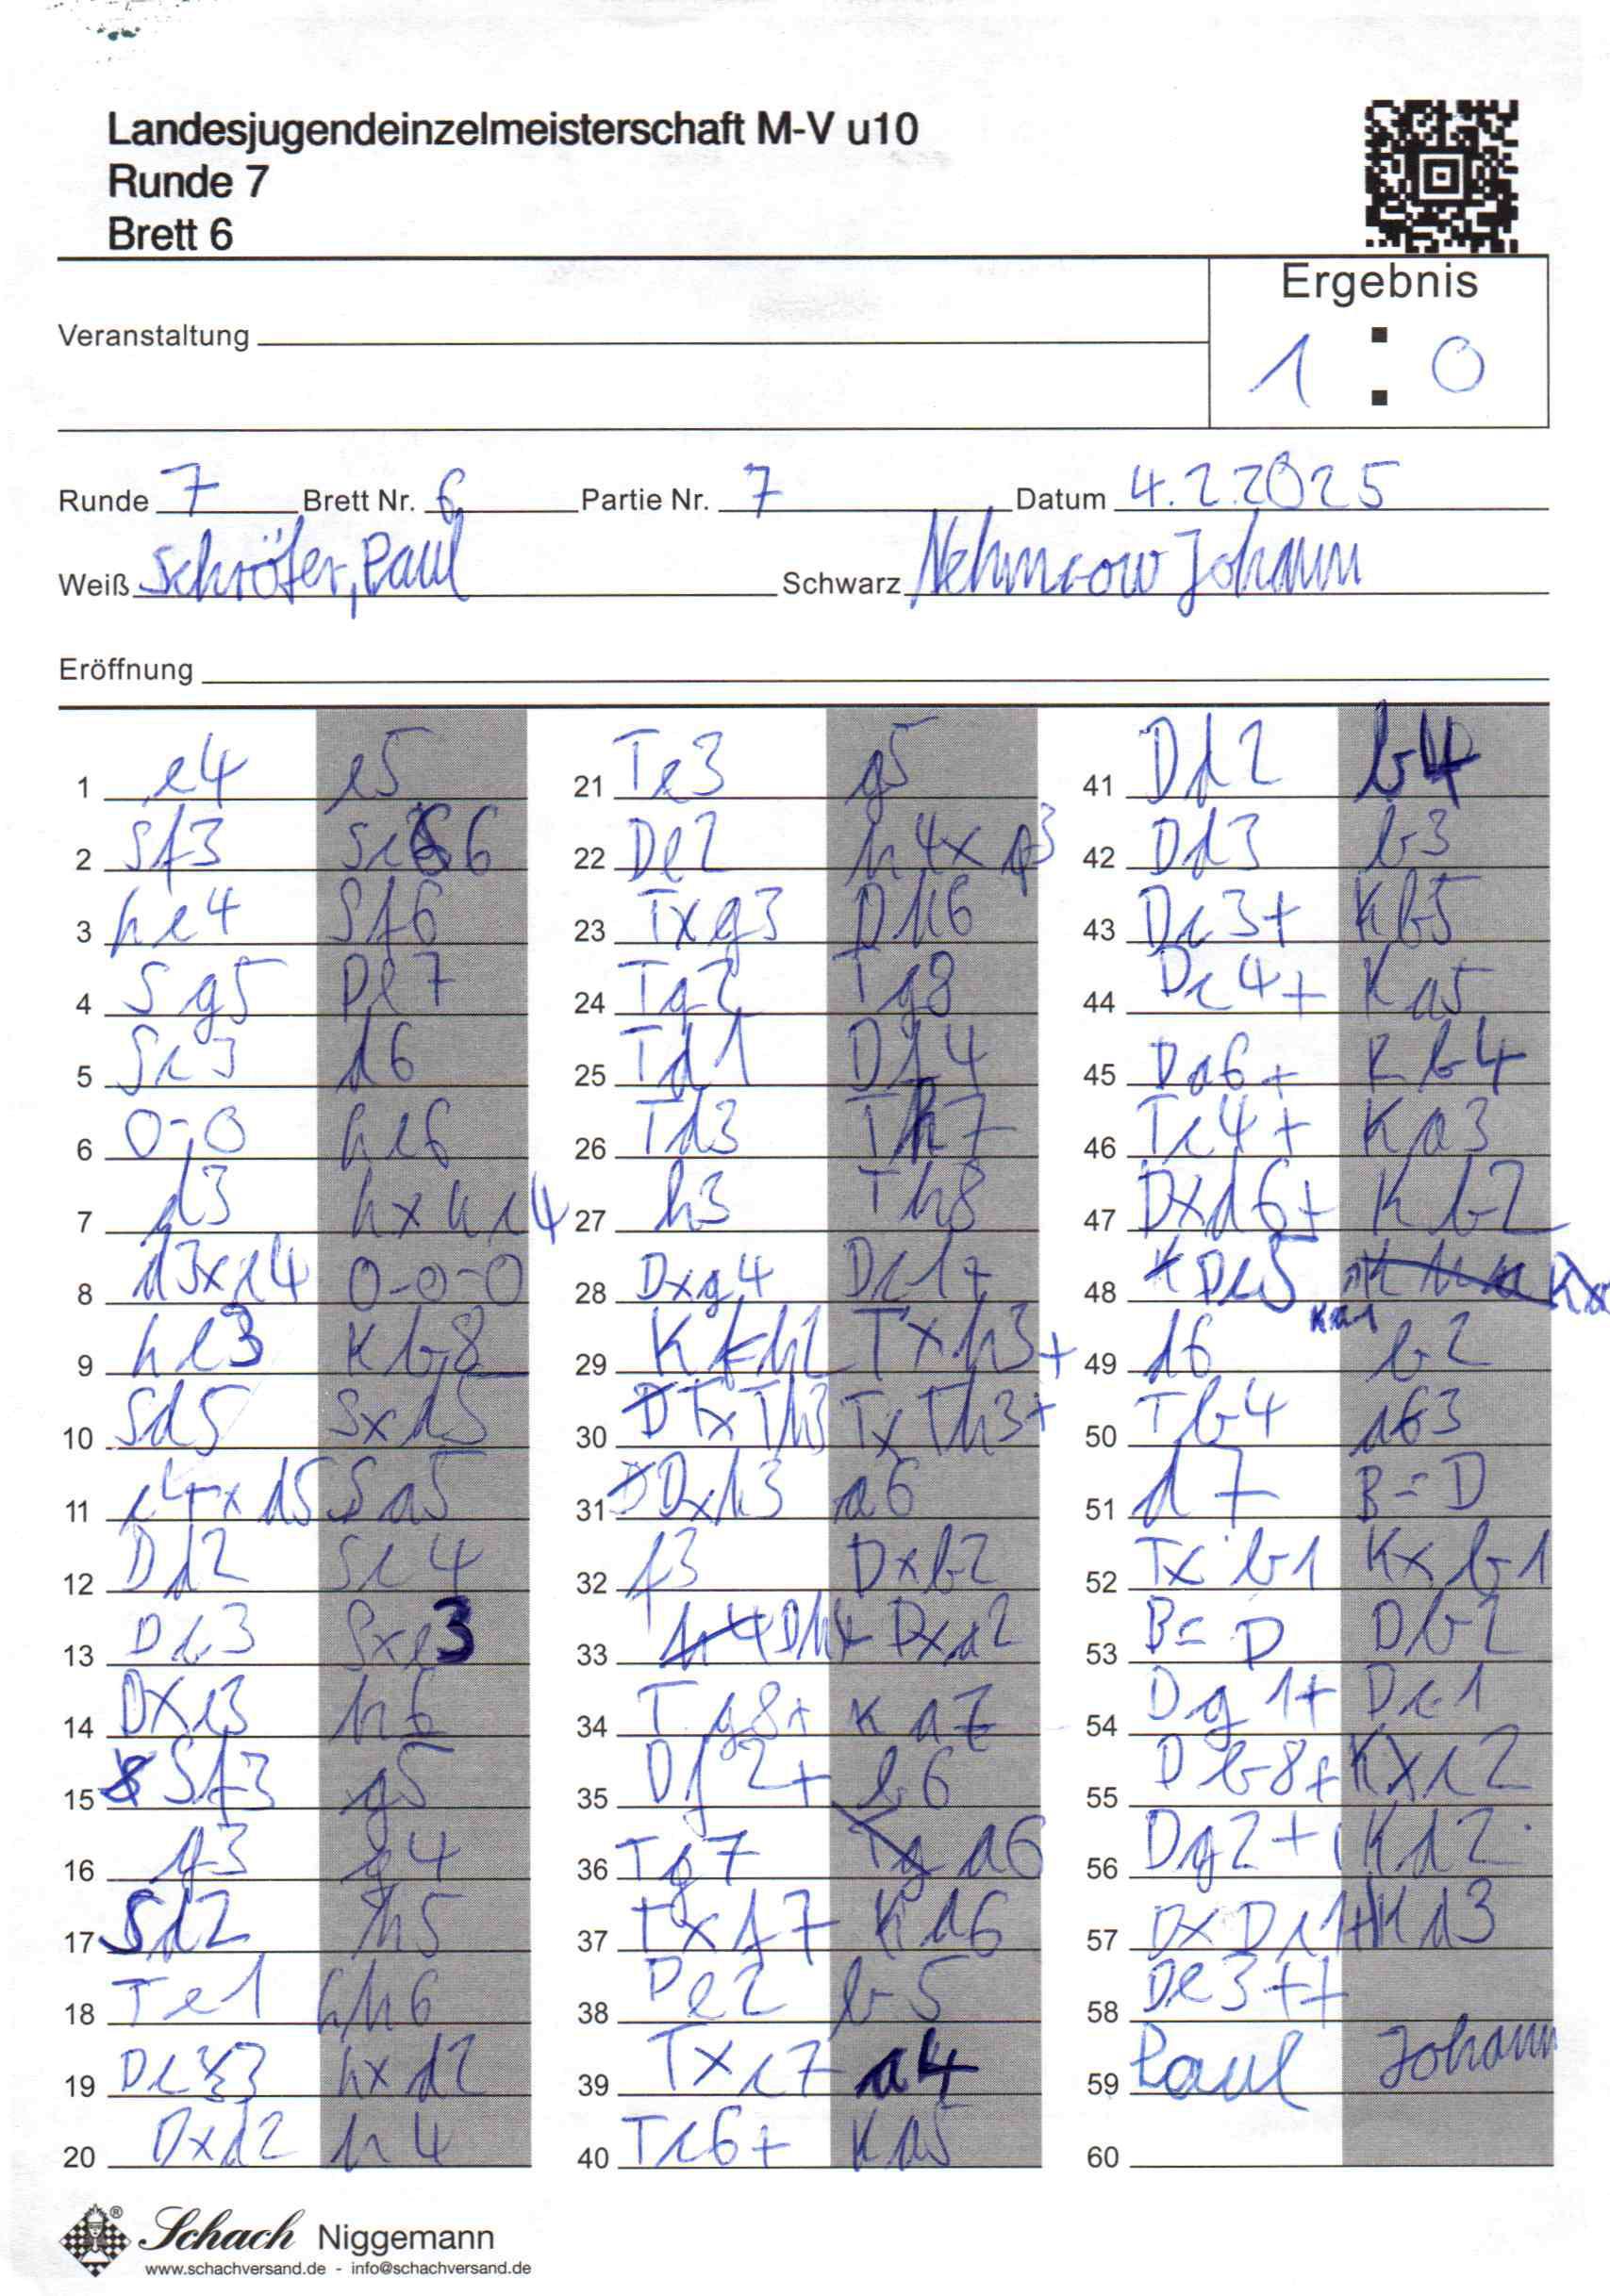 Landesjugendeinzelmeisterschaft M-V u10
Runde 7
Brett 6
Ergebnis
1 : 0
Veranstaltung
Runde 7 Brett Nr. 6 Partie Nr. 7 Datum 4.2.2025
Weiß Schröter, Paul Schwarz Johann
Eröffnung
1 e4 e5
2 Sf3 Sc6
3 Lc4 Sf6
4 Sg5 De7
5 Sc3 d6
6 0-0 Le6
7 d3 LxLc4
8 d3xc4 0-0-0
9 Le3 Kb8
10 Sd5 Sxd5
11 c4xd5 Sa5
12 Dd2 Sc4
13 Dc3 Sxe3
14 Dxe3 h6
15 Sf3 g5
16 g3 g4
17 Sd2 h5
18 Te1 Lh6
19 Dc3 Lxd2
20 Dxd2 h4
21 Te3 g5
22 De2 h4xg3
23 Txg3 Dh6
24 Tg2 Tg8
25 Td1 Df4
26 Td3 Th7
27 h3 Th8
28 Dxg4 Dc1+
29 Kh2 Txh3+
30 TxTh3 TxTh3+
31 Dxh3 a6
32 f3 Dxb2
33 Dh4 Dxc2
34 Tg8+ Ka7
35 Df2+ b6
36 Tg7 a6
37 Txf7 Ka6
38 De2 b5
39 Txc7 a4
40 Tc6+ Ka5
41 Dd2 b4
42 Dd3 b3
43 Dc3+ Kb5
44 Dc4+ Ka5
45 Da6+ Kb4
46 Tc4+ Ka3
47 Dxd6+ Kb2
48 Dc5 Ka1
49 d6 b2
50 Tb4 a3
51 d7 B=D
52 Txb1 Kxb1
53 B=D Db2
54 Dg1+ Dc1
55 Db8+ Kxc2
56 Dg2+ Kd2
57 DxDc1+ Kd3
58 De3++
59 Paul Johann
60
Schach Niggemann
www.schachversand.de - info@schachversand.de